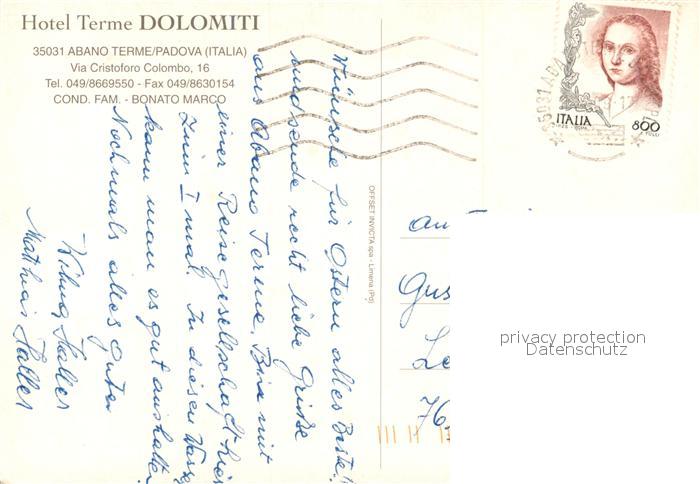 Hotel Terme DOLOMITI
35031 ABANO TERME/PADOVA (ITALIA)
Via Cristoforo Colombo, 16
Tel. 049/8669550 - Fax 049/8630154
COND. FAM. - BONATO MARCO
Wünsche für Ostern alles Beste!
und sende recht liebe Grüße
aus Abano Terme. Bin mit
einer Reisegesellschaft hier
Zum I mal. In diesen Wasser
kann man es gut aushalten.
Nochmals alles Gute
Wilma Haller
Matthias Haller
OFFSET INVICTA spa - Limena (Pd)
ITALIA
800
35031 ABA
An
Gus
Le
76
privacy protection
Datenschutz